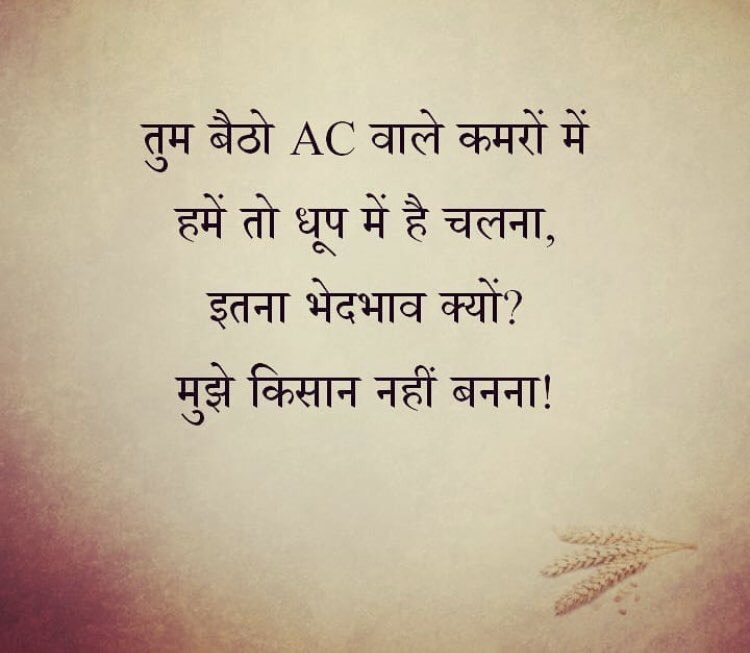 तुम बैठो AC वाले कमरों में
हमें तो धूप में है चलना,
इतना भेदभाव क्यों?
मुझे किसान नहीं बनना!